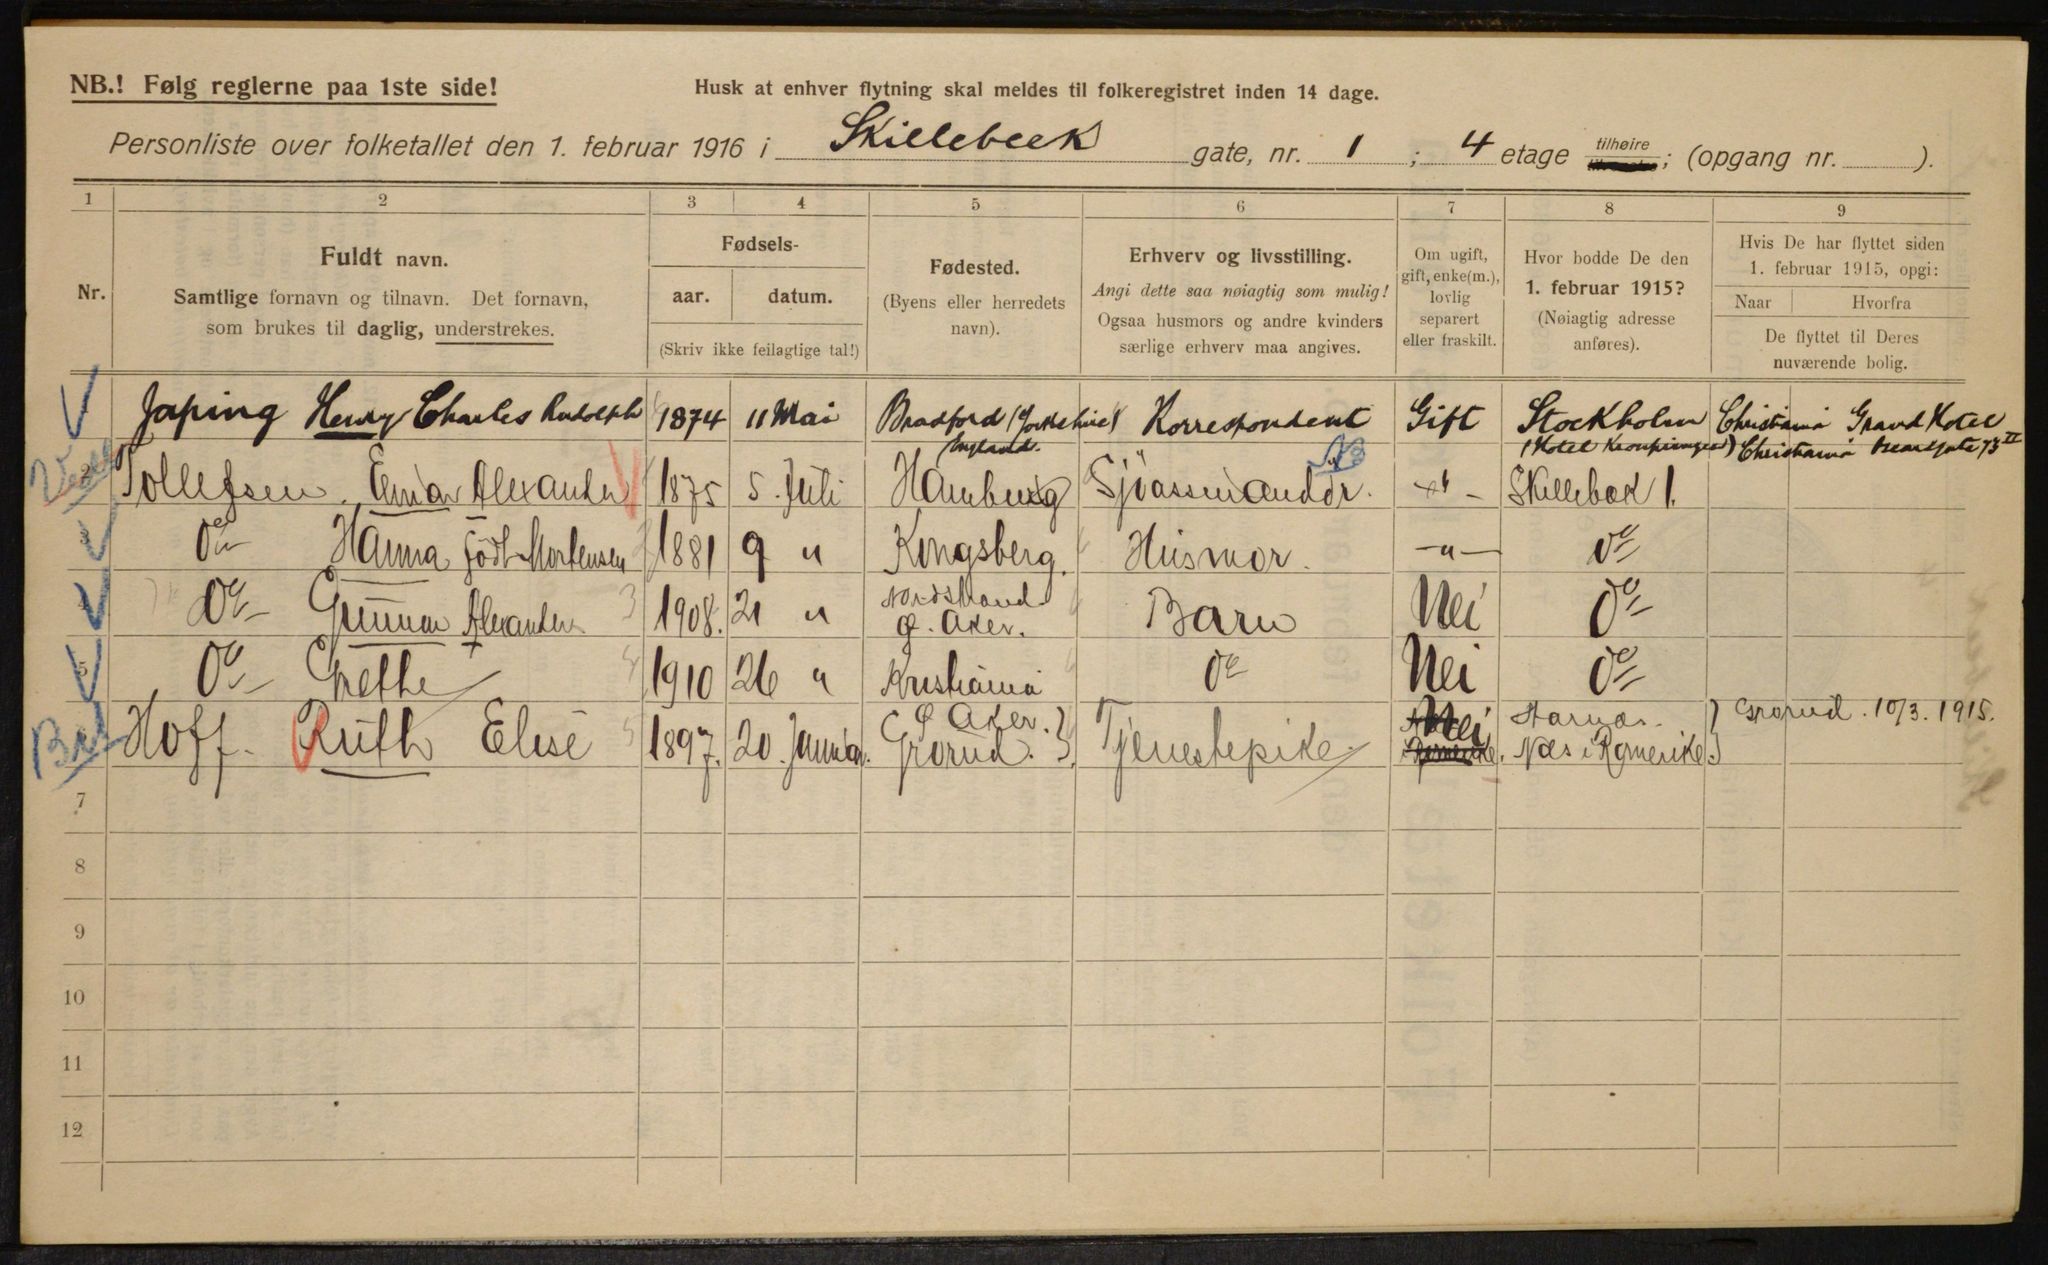 NB.! Følg reglerne paa 1ste side!
Husk at enhver flytning skal meldes til folkeregistret inden 14 dage.
Personliste over folketallet den 1. februar 1916 i Skillebeek gate, nr. 1 ; 4 etage tilhøire ; (opgang nr. ).
1 2 3 4 5 6 7 8 9
Nr.
Fuldt navn.
Samtlige fornavn og tilnavn. Det fornavn,
som brukes til daglig, understrekes.
Fødsels-
aar. datum.
(Skriv ikke feilagtige tal!)
Fødested.
(Byens eller herredets
navn).
Erhverv og livsstilling.
Angi dette saa nøiagtig som mulig!
Ogsaa husmors og andre kvinders
særlige erhverv maa angives.
Om ugift,
gift, enke(m.),
lovlig
separert
eller fraskilt.
Hvor bodde De den
1. februar 1915?
(Nøiagtig adresse
anføres).
Hvis De har flyttet siden
1. februar 1915, opgi:
Naar Hvorfra
De flyttet til Deres
nuværende bolig.
Japing Henry Charles Rudolph 1874 11 Mai Bradford (Yorkshire) England. Korrespondent Gift Stockholm (Hotel Kronprinsen) Christiania Grand Hotel
Christiania Oscarsgate 73 II
2 Tollefsen Einar Alexander 1875 5. Juli Hamburg Sjöassurandör. -"- Skillebæk 1.
3 Do Hanna födt Mortensen 1881 9 " Kongsberg. Husmor. -"- Do
4 Do Gunnar Alexander 1908. 21 " Nordstrand Ø. Aker. Barn Nei Do
5 Do Grethe 1910 26 " Kristiania Do Nei Do
Hoff. Ruth Elise 1897. 20. Januar. Ø Aker. Grorud. Tjenestepike. Nei Aarnæs. Næs i Romerike. Grorud. 10/3. 1915.
7
8
9
10
11
12